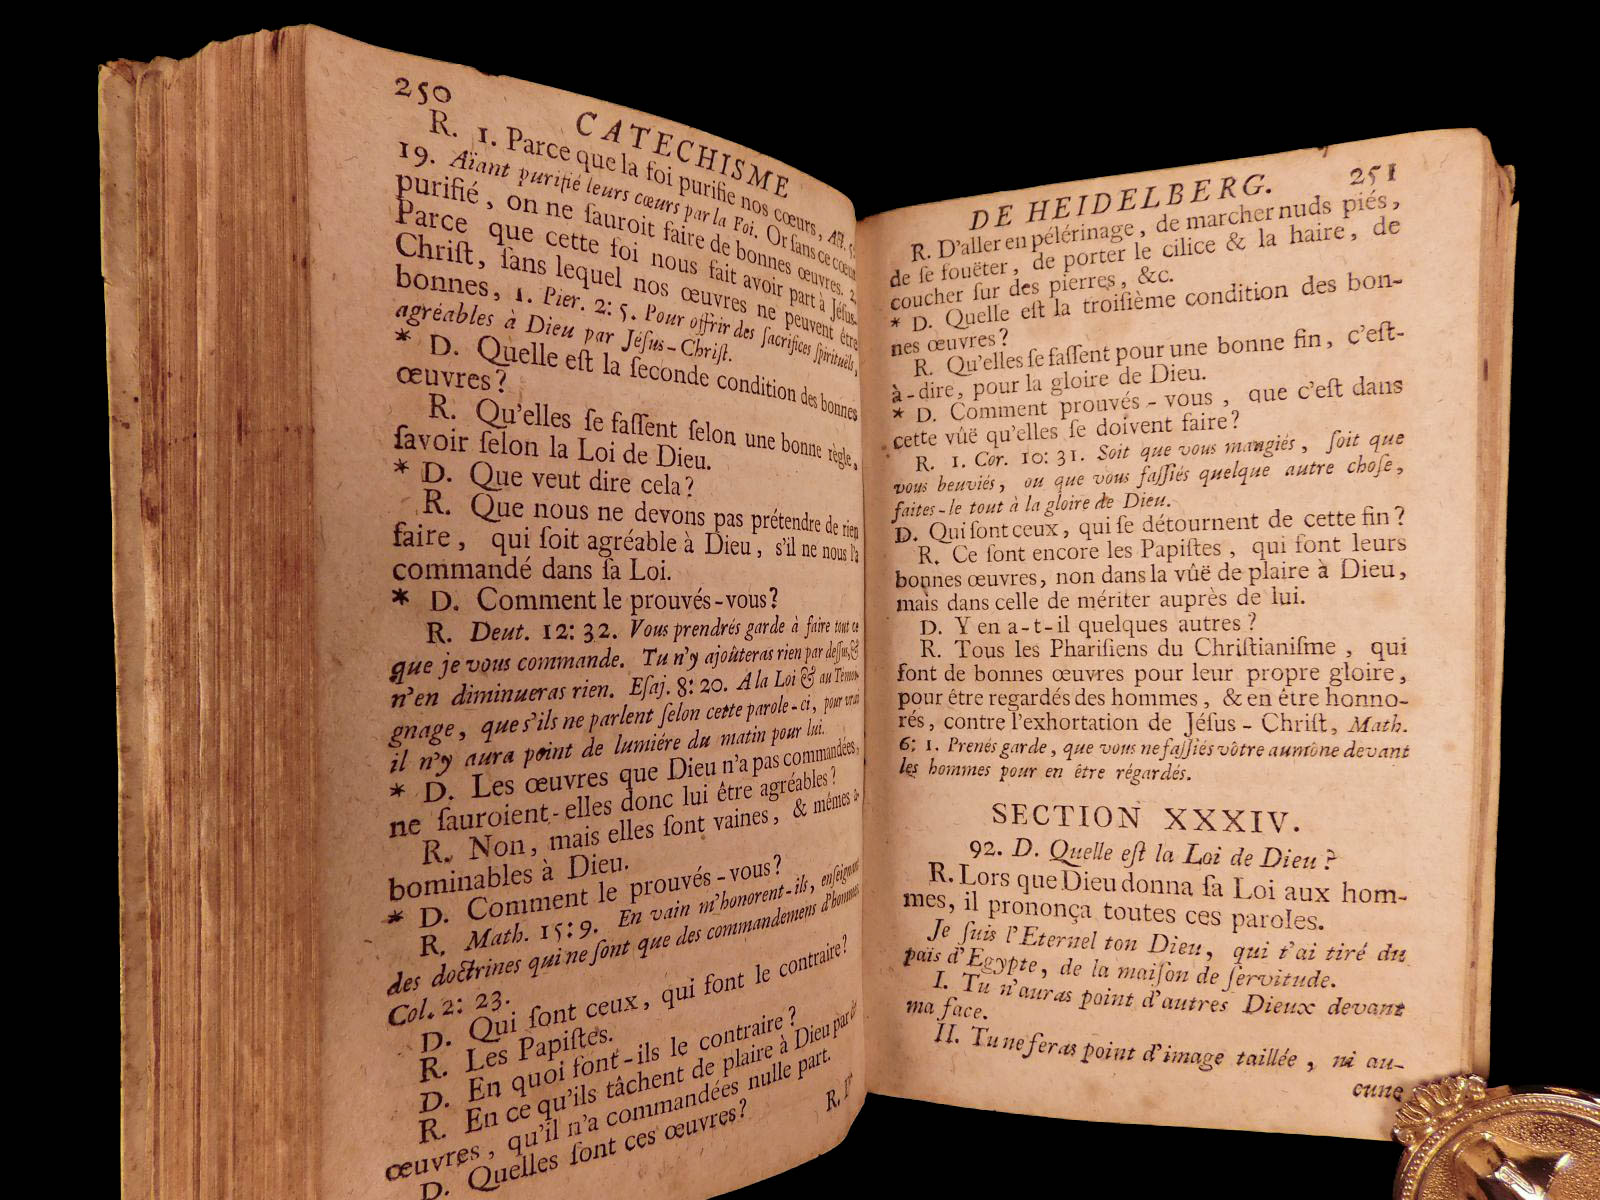 250
CATECHISME
R. 1. Parce que la foi purifie nos cœurs, Act.
19. Aïant purifié leurs cœurs par la Foi. Or sans ce cœur
purifié, on ne ſauroit faire de bonnes œuvres. 2.
Parce que cette foi nous fait avoir part à Jéſus-
Chriſt, ſans lequel nos œuvres ne peuvent être
bonnes, 1. Pier. 2: 5. Pour offrir des ſacrifices ſpirituels,
agréables à Dieu par Jéſus-Chriſt.
* D. Quelle eſt la ſeconde condition des bonnes
œuvres?
R. Qu'elles ſe faſſent ſelon une bonne règle,
ſavoir ſelon la Loi de Dieu.
* D. Que veut dire cela?
R. Que nous ne devons pas prétendre de rien
faire, qui ſoit agréable à Dieu, s'il ne nous l'a
commandé dans ſa Loi.
* D. Comment le prouvés-vous?
R. Deut. 12: 32. Vous prendrés garde à faire tout ce
que je vous commande. Tu n'y ajoûteras rien par deſſus, &
n'en diminueras rien. Eſaj. 8: 20. A la Loi & au Témoi-
gnage, que s'ils ne parlent ſelon cette parole-ci, pour vrai
il n'y aura point de lumiére du matin pour lui.
* D. Les œuvres que Dieu n'a pas commandées,
ne ſauroient-elles donc lui être agréables?
R. Non, mais elles ſont vaines, & mêmes a-
bominables à Dieu.
* D. Comment le prouvés-vous?
R. Math. 15: 9. En vain m'honorent-ils, enſeignant
des doctrines qui ne ſont que des commandemens d'hommes
Col. 2: 23.
D. Qui ſont ceux, qui font le contraire?
R. Les Papiſtes.
D. En quoi font-ils le contraire?
R. En ce qu'ils tâchent de plaire à Dieu par des
œuvres, qu'il n'a commandées nulle part.
D. Quelles ſont ces œuvres?
R.
DE HEIDELBERG.
251
R. D'aller en pélérinage, de marcher nuds piés,
de ſe fouëter, de porter le cilice & la haire, de
coucher ſur des pierres, &c.
* D. Quelle eſt la troiſième condition des bon-
nes œuvres?
R. Qu'elles ſe faſſent pour une bonne fin, c'eſt-
à-dire, pour la gloire de Dieu.
* D. Comment prouvés-vous, que c'eſt dans
cette vûë qu'elles ſe doivent faire?
R. 1. Cor. 10: 31. Soit que vous mangiés, ſoit que
vous beuviés, ou que vous faſſiés quelque autre choſe,
faites-le tout à la gloire de Dieu.
D. Qui ſont ceux, qui ſe détournent de cette fin?
R. Ce ſont encore les Papiſtes, qui font leurs
bonnes œuvres, non dans la vûë de plaire à Dieu,
mais dans celle de mériter auprès de lui.
D. Y en a-t-il quelques autres?
R. Tous les Phariſiens du Chriſtianiſme, qui
font de bonnes œuvres pour leur propre gloire,
pour être regardés des hommes, & en être honno-
rés, contre l'exhortation de Jéſus-Chriſt, Math.
6: 1. Prenés garde, que vous ne faſſiés vôtre aumône devant
les hommes pour en être régardés.
SECTION XXXIV.
92. D. Quelle eſt la Loi de Dieu?
R. Lors que Dieu donna ſa Loi aux hom-
mes, il prononça toutes ces paroles.
Je ſuis l'Eternel ton Dieu, qui t'ai tiré du
païs d'Egypte, de la maiſon de ſervitude.
I. Tu n'auras point d'autres Dieux devant
ma face.
II. Tu ne feras point d'image taillée, ni au-
cune